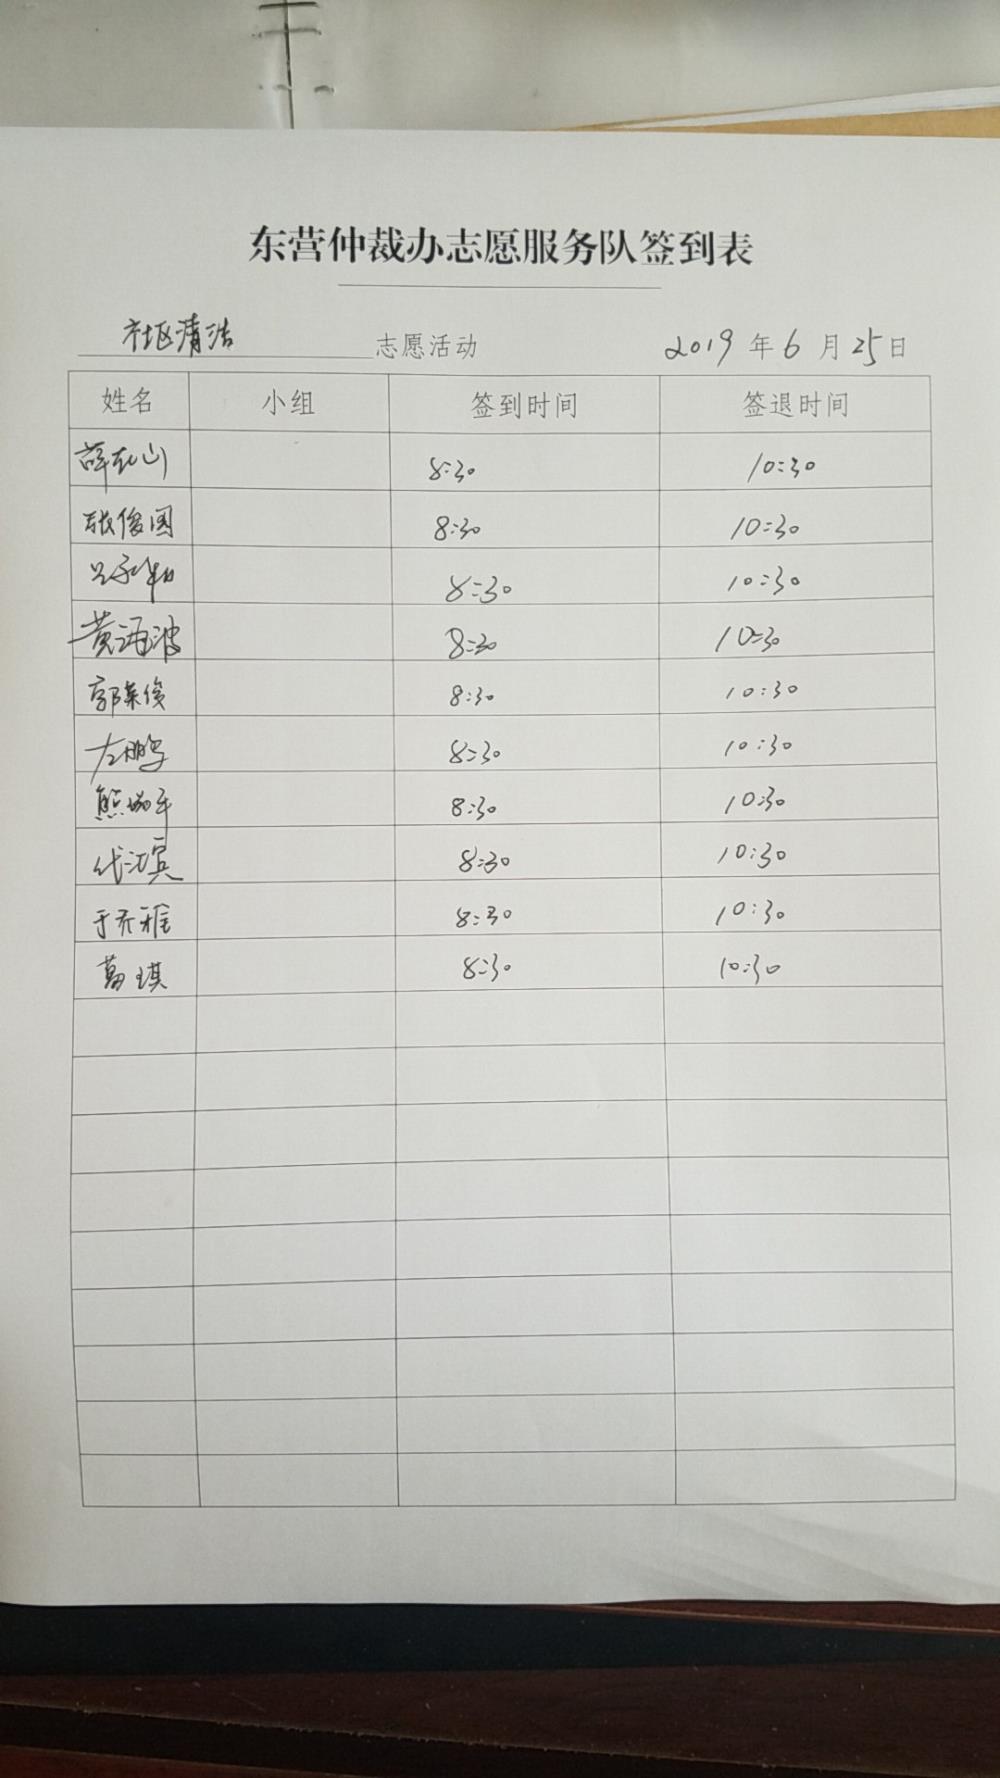 东营仲裁办志愿服务队签到表
社区清洁 志愿活动 2019年6月25日
姓名 小组 签到时间 签退时间
8:30 10:30
张俊国 8:30 10:30
8:30 10:30
黄海波 8:30 10:30
郭荣俊 8:30 10:30
左鹏 8:30 10:30
熊瑞平 8:30 10:30
代江宾 8:30 10:30
于乔雅 8:30 10:30
葛琪 8:30 10:30